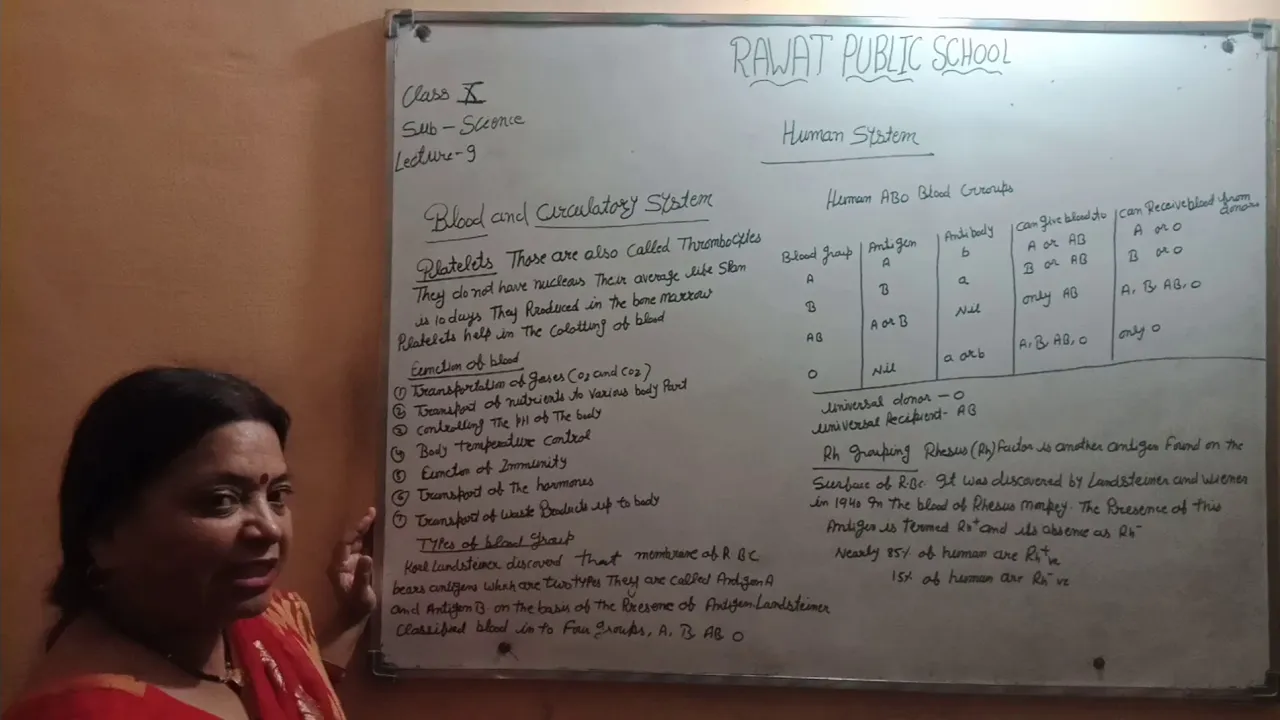 RAWAT PUBLIC SCHOOL
Class X
Sub - Science
Lecture-9
Human System
Blood and Circulatory System
Platelets These are also Called Thrombocytes
They do not have nucleus Their average life Span
is 10 days They Produced in the bone marrow
Platelets help in The Colotting of blood
Function of blood
① Transportation of gases (O2 and CO2)
② Transport of nutrients to various body Part
③ Controlling The PH of The body
④ Body temperature Control
⑤ Function of Immunity
⑥ Transport of The hormones
⑦ Transport of Waste Products up to body
Types of blood group
Karl Landsteiner discoverd that membrane of R B C
bears antigens which are two types They are called Antigen A
and Antigen B on the basis of the Presene of Antigen Landsteiner
Classified blood in to Four groups, A, B, AB O
Human ABO Blood Groups
Blood group Antigen Antibody Can give blood to Can Receive blood from donors
A A b A or AB A or O
B B a B or AB B or O
AB A or B Nil only AB A, B, AB, O
O Nil a or b A, B, AB, O only O
Universal donor - O
Universal Recipient - AB
Rh grouping Rhesus (Rh) Factor is another antigen Found on the
Surface of R.B.C. It was discovered by Landsteiner and Wiener
in 1940 In the blood of Rhesus Monkey. The Presence of this
Antigen is termed Rh+ and its absence as Rh-
Nearly 85% of human are Rh+ve
15% of human are Rh-ve